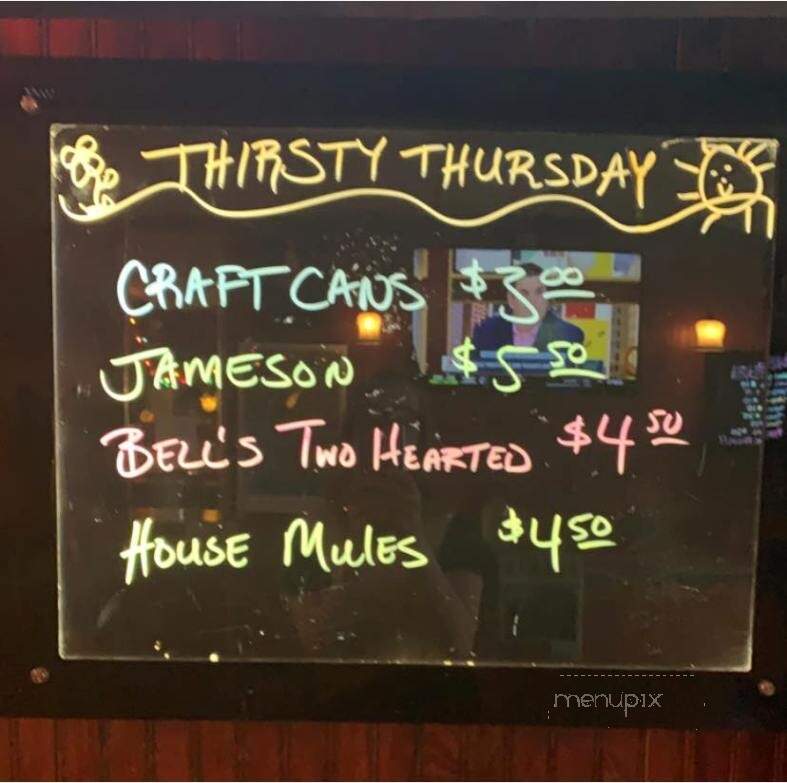 THIRSTY THURSDAY
CRAFT CANS $3.00
JAMESON $5.50
BELL'S TWO HEARTED $4.50
HOUSE MULES $4.50
menupix